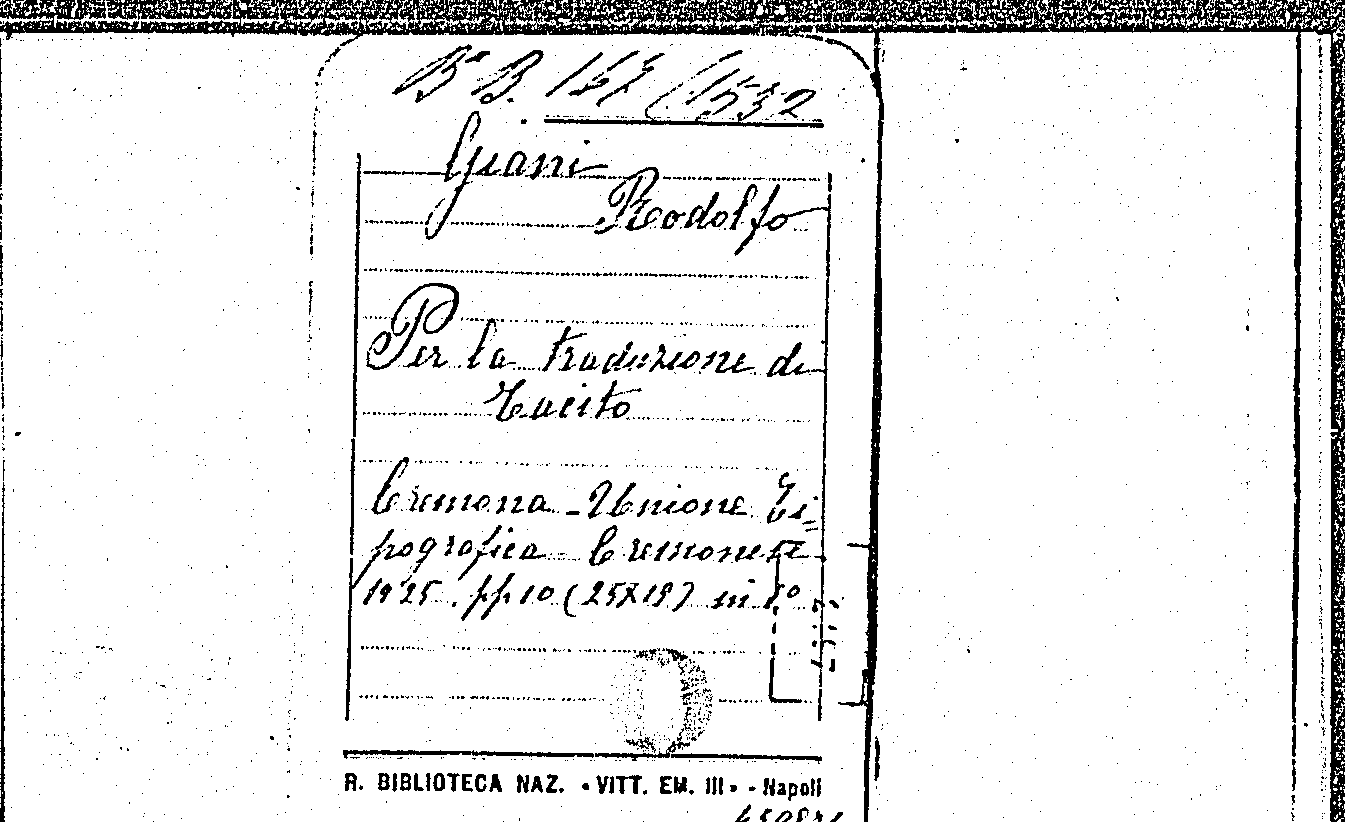 B B. 157 (1532
Giani
Rodolfo
Per la traduzione di
Tacito
Cremona - Unione Ti=
pografica Cremonese
1925. pp 10 (25X18) in 8º
R. BIBLIOTECA NAZ. «VITT. EM. III» - Napoli